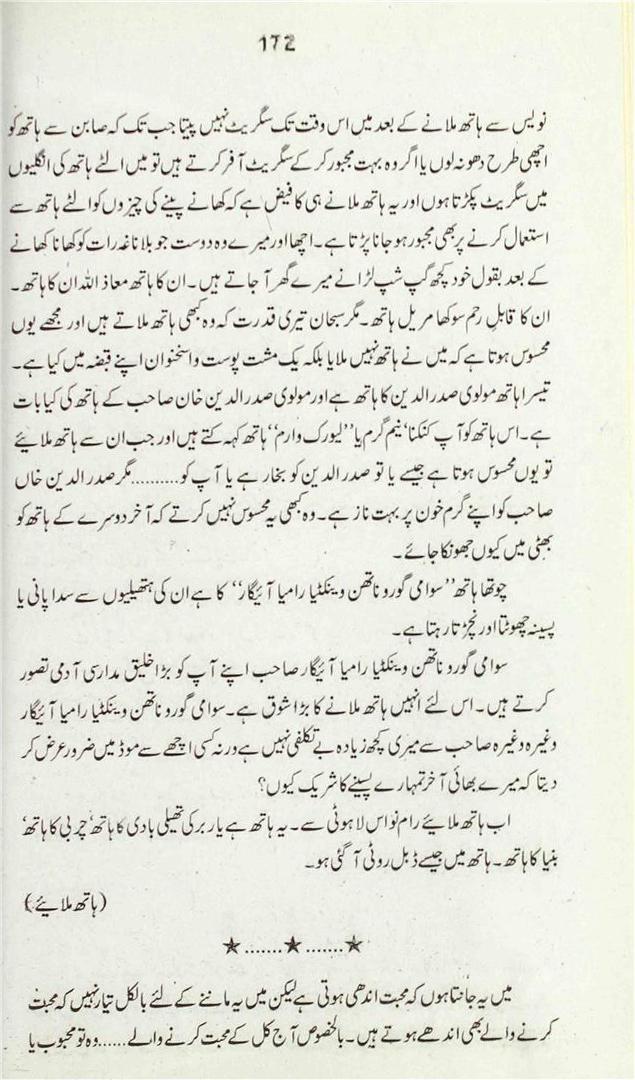 172
نویس سے ہاتھ ملانے کے بعد میں اس وقت تک سگریٹ نہیں پیتا جب تک کہ صابن سے ہاتھ کو
اچھی طرح دھو نہ لوں یا اگر وہ بہت مجبور کر کے سگریٹ آفر کرتے ہیں تو میں الٹے ہاتھ کی انگلیوں
میں سگریٹ پکڑتا ہوں اور یہ ہاتھ ملانے ہی کا فیض ہے کہ کھانے پینے کی چیزوں کو الٹے ہاتھ سے
استعمال کرنے پر بھی مجبور ہو جانا پڑتا ہے۔ اچھا اور میرے وہ دوست جو بلا ناغہ رات کو کھانا کھانے
کے بعد بقول خود کچھ گپ شپ لڑانے میرے گھر آ جاتے ہیں۔ ان کا ہاتھ معاذ اللہ ان کا ہاتھ۔
ان کا قابلِ رحم سوکھا مریل ہاتھ۔ مگر سبحان تیری قدرت کہ وہ کبھی ہاتھ ملاتے ہیں اور مجھے یوں
محسوس ہوتا ہے کہ میں نے ہاتھ نہیں ملایا بلکہ یک مشت پوست و استخوان اپنے قبضہ میں کیا ہے۔
تیسرا ہاتھ مولوی صدر الدین کا ہاتھ ہے اور مولوی صدر الدین خان صاحب کے ہاتھ کی کیا بات
ہے۔ اس ہاتھ کو آپ کنکنا‘ نیم گرم یا ’’لیورک وارم‘‘ ہاتھ کہہ سکتے ہیں اور جب ان سے ہاتھ ملائیے
تو یوں محسوس ہوتا ہے جیسے یا تو صدر الدین کو بخار ہے یا آپ کو..........مگر صدر الدین خاں
صاحب کو اپنے گرم خون پر بہت ناز ہے۔ وہ کبھی یہ محسوس نہیں کرتے کہ آخر دوسرے کے ہاتھ کو
بھٹی میں کیوں جھونکا جائے۔
چوتھا ہاتھ ’’سوامی گورو ناتھن وینکٹیا رامیا آئیگار‘‘ کا ہے ان کی ہتھیلیوں سے سدا پانی یا
پسینہ چھوٹتا اور نچڑتا رہتا ہے۔
سوامی گورو ناتھن وینکٹیا رامیا آئیگار صاحب اپنے آپ کو بڑا خلیق مدارسی آدمی تصور
کرتے ہیں۔ اس لئے انہیں ہاتھ ملانے کا بڑا شوق ہے۔ سوامی گورو ناتھن وینکٹیا رامیا آئیگار
وغیرہ وغیرہ صاحب سے میری کچھ زیادہ بے تکلفی نہیں ہے ورنہ کسی اچھے سے موڈ میں ضرور عرض کر
دیتا کہ میرے بھائی آخر تمہارے پسینے کا شریک کیوں؟
اب ہاتھ ملائیے رام نواس لاہوٹی سے۔ یہ ہاتھ ہے یا ربر کی تھیلی بادی کا ہاتھ‘ چربی کا ہاتھ‘
بنیا کا ہاتھ۔ ہاتھ میں جیسے ڈبل روٹی آ گئی ہو۔
(ہاتھ ملائیے)
★.......★.......★
میں یہ جانتا ہوں کہ محبت اندھی ہوتی ہے لیکن میں یہ ماننے کے لئے بالکل تیار نہیں کہ محبت
کرنے والے بھی اندھے ہوتے ہیں۔ بالخصوص آج کل کے محبت کرنے والے......وہ تو محبوب یا